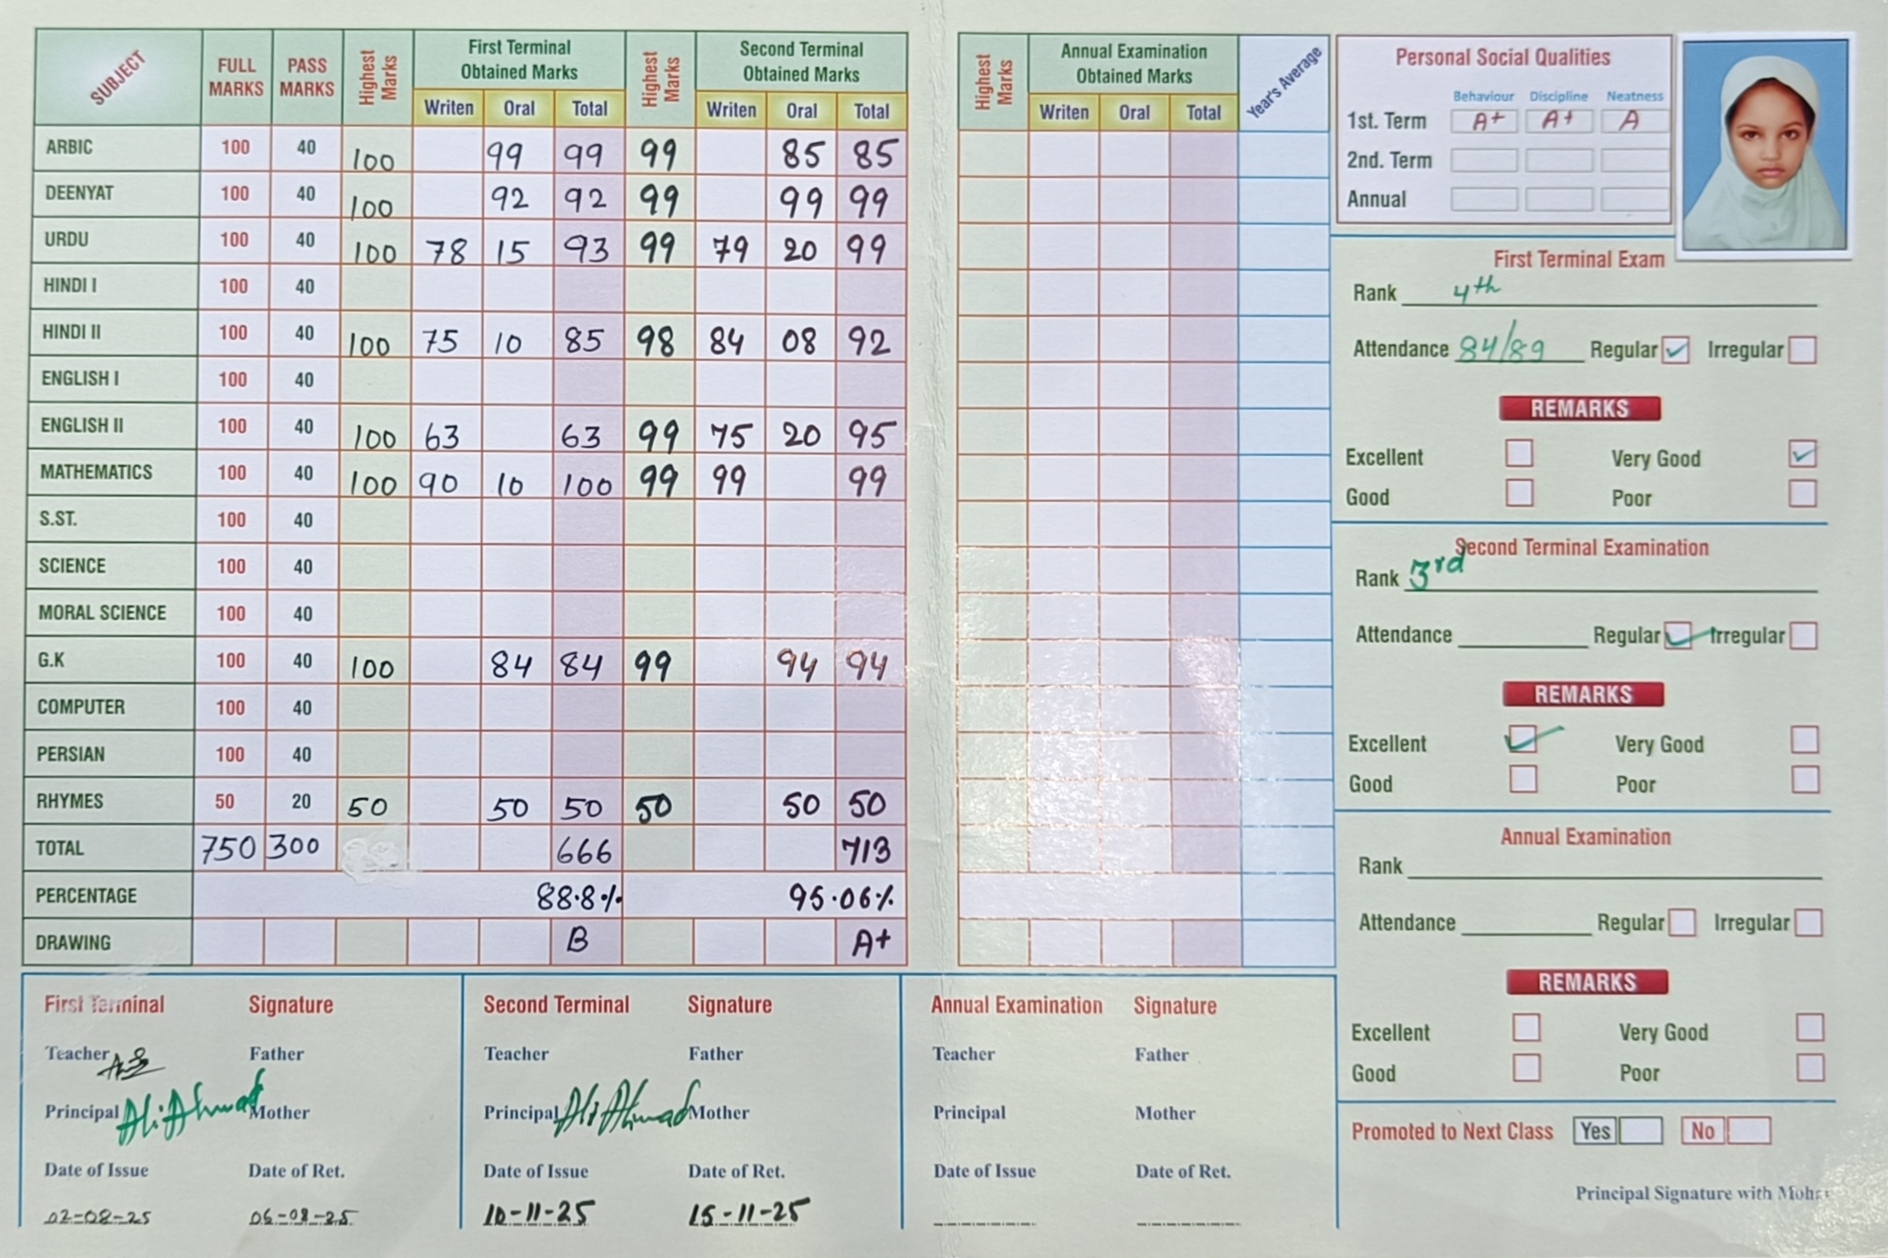 SUBJECT FULL MARKS PASS MARKS Highest Marks First Terminal Obtained Marks Highest Marks Second Terminal Obtained Marks
Writen Oral Total Writen Oral Total
ARBIC 100 40 100 99 99 99 85 85
DEENYAT 100 40 100 92 92 99 99 99
URDU 100 40 100 78 15 93 99 79 20 99
HINDI I 100 40
HINDI II 100 40 100 75 10 85 98 84 08 92
ENGLISH I 100 40
ENGLISH II 100 40 100 63 63 99 75 20 95
MATHEMATICS 100 40 100 90 10 100 99 99 99
S.ST. 100 40
SCIENCE 100 40
MORAL SCIENCE 100 40
G.K 100 40 100 84 84 99 94 94
COMPUTER 100 40
PERSIAN 100 40
RHYMES 50 20 50 50 50 50 50 50
TOTAL 750 300 666 713
PERCENTAGE 88.8% 95.06%
DRAWING B A+
Highest Marks Annual Examination Obtained Marks Year's Average
Writen Oral Total
Personal Social Qualities
Behaviour Discipline Neatness
1st. Term A+ A+ A
2nd. Term
Annual
First Terminal Exam
Rank 4th
Attendance 84/89 Regular Irregular
REMARKS
Excellent Very Good
Good Poor
Second Terminal Examination
Rank 3rd
Attendance Regular Irregular
REMARKS
Excellent Very Good
Good Poor
Annual Examination
Rank
Attendance Regular Irregular
REMARKS
Excellent Very Good
Good Poor
Promoted to Next Class Yes No
Principal Signature with
First Terminal Signature
Teacher Father
Principal Ali Ahmad Mother
Date of Issue Date of Ret.
02-08-25 06-08-25
Second Terminal Signature
Teacher Father
Principal Ali Ahmad Mother
Date of Issue Date of Ret.
10-11-25 15-11-25
Annual Examination Signature
Teacher Father
Principal Mother
Date of Issue Date of Ret.